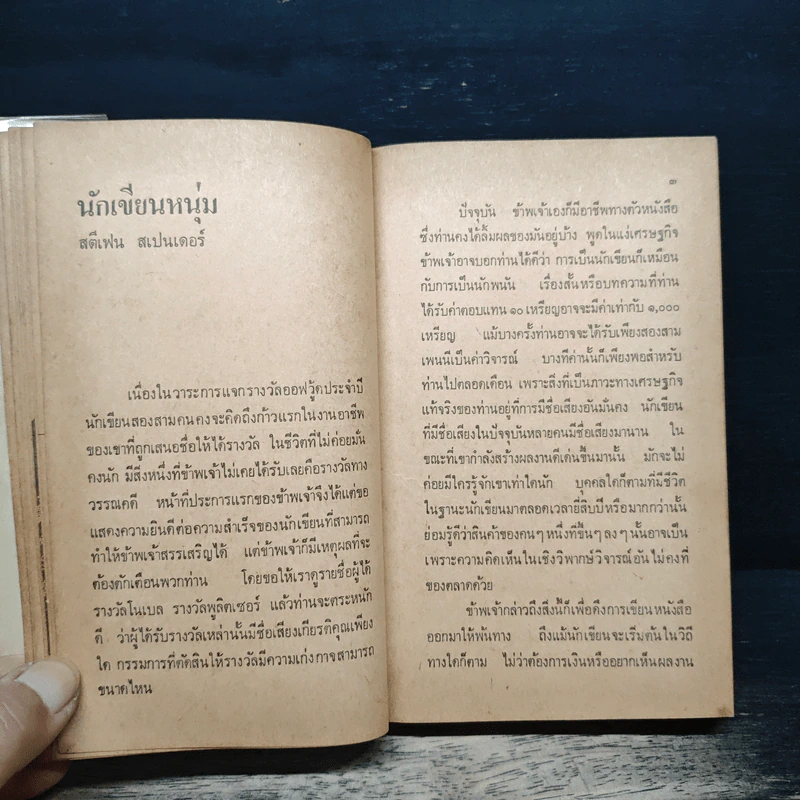 นักเขียนหนุ่ม
สตีเฟน สเปนเดอร์
เนื่องในวาระการแจกรางวัลออฟวู้ดประจำปี
นักเขียนสองสามคนคงจะคิดถึงก้าวแรกในงานอาชีพ
ของเขาที่ถูกเสนอชื่อให้ได้รางวัล ในชีวิตที่ไม่ค่อยมั่น
คงนัก มีสิ่งหนึ่งที่ข้าพเจ้าไม่เคยได้รับเลยคือรางวัลทาง
วรรณคดี หน้าที่ประการแรกของข้าพเจ้าจึงได้แต่ขอ
แสดงความยินดีต่อความสำเร็จของนักเขียนที่สามารถ
ทำให้ข้าพเจ้าสรรเสริญได้ แต่ข้าพเจ้าก็มีเหตุผลที่จะ
ต้องตักเตือนพวกท่าน โดยขอให้เราดูรายชื่อผู้ได้
รางวัลโนเบล รางวัลพูลิตเซอร์ แล้วท่านจะตระหนัก
ดี ว่าผู้ได้รับรางวัลเหล่านั้นมีชื่อเสียงเกียรติคุณเพียง
ใด กรรมการที่ตัดสินให้รางวัลมีความเก่งกาจสามารถ
ขนาดไหน
๓
ปัจจุบัน ข้าพเจ้าเองก็มีอาชีพทางตัวหนังสือ
ซึ่งท่านคงได้ลิ้มผลของมันอยู่บ้าง พูดในแง่เศรษฐกิจ
ข้าพเจ้าอาจบอกท่านได้ดีว่า การเป็นนักเขียนก็เหมือน
กับการเป็นนักพนัน เรื่องสั้นหรือบทความที่ท่าน
ได้รับค่าตอบแทน ๑๐ เหรียญอาจจะมีค่าเท่ากับ ๑,๐๐๐
เหรียญ แม้บางครั้งท่านอาจจะได้รับเพียงสองสาม
เพนนีเป็นค่าวิจารณ์ บางทีค่านั้นก็เพียงพอสำหรับ
ท่านไปตลอดเดือน เพราะสิ่งที่เป็นภาวะทางเศรษฐกิจ
แท้จริงของท่านอยู่ที่การมีชื่อเสียงอันมั่นคง นักเขียน
ที่มีชื่อเสียงในปัจจุบันหลายคนมีชื่อเสียงมานาน ใน
ขณะที่เขากำลังสร้างผลงานดีเด่นขึ้นมานั้น มักจะไม่
ค่อยมีใครรู้จักเขาเท่าใดนัก บุคคลใดก็ตามที่มีชีวิต
ในฐานะนักเขียนมาตลอดเวลายี่สิบปีหรือมากกว่านั้น
ย่อมรู้ดีว่าสินค้าของคนๆ หนึ่งที่ขึ้นๆ ลงๆ นั้นอาจเป็น
เพราะความคิดเห็นในเชิงวิพากษ์วิจารณ์อันไม่คงที่
ของตลาดด้วย
ข้าพเจ้ากล่าวถึงสิ่งนี้ก็เพื่อดึงการเขียนหนังสือ
ออกมาให้พ้นทาง ถึงแม้นักเขียนจะเริ่มต้นในวิถี
ทางใดก็ตาม ไม่ว่าต้องการเงินหรืออยากเห็นผลงาน